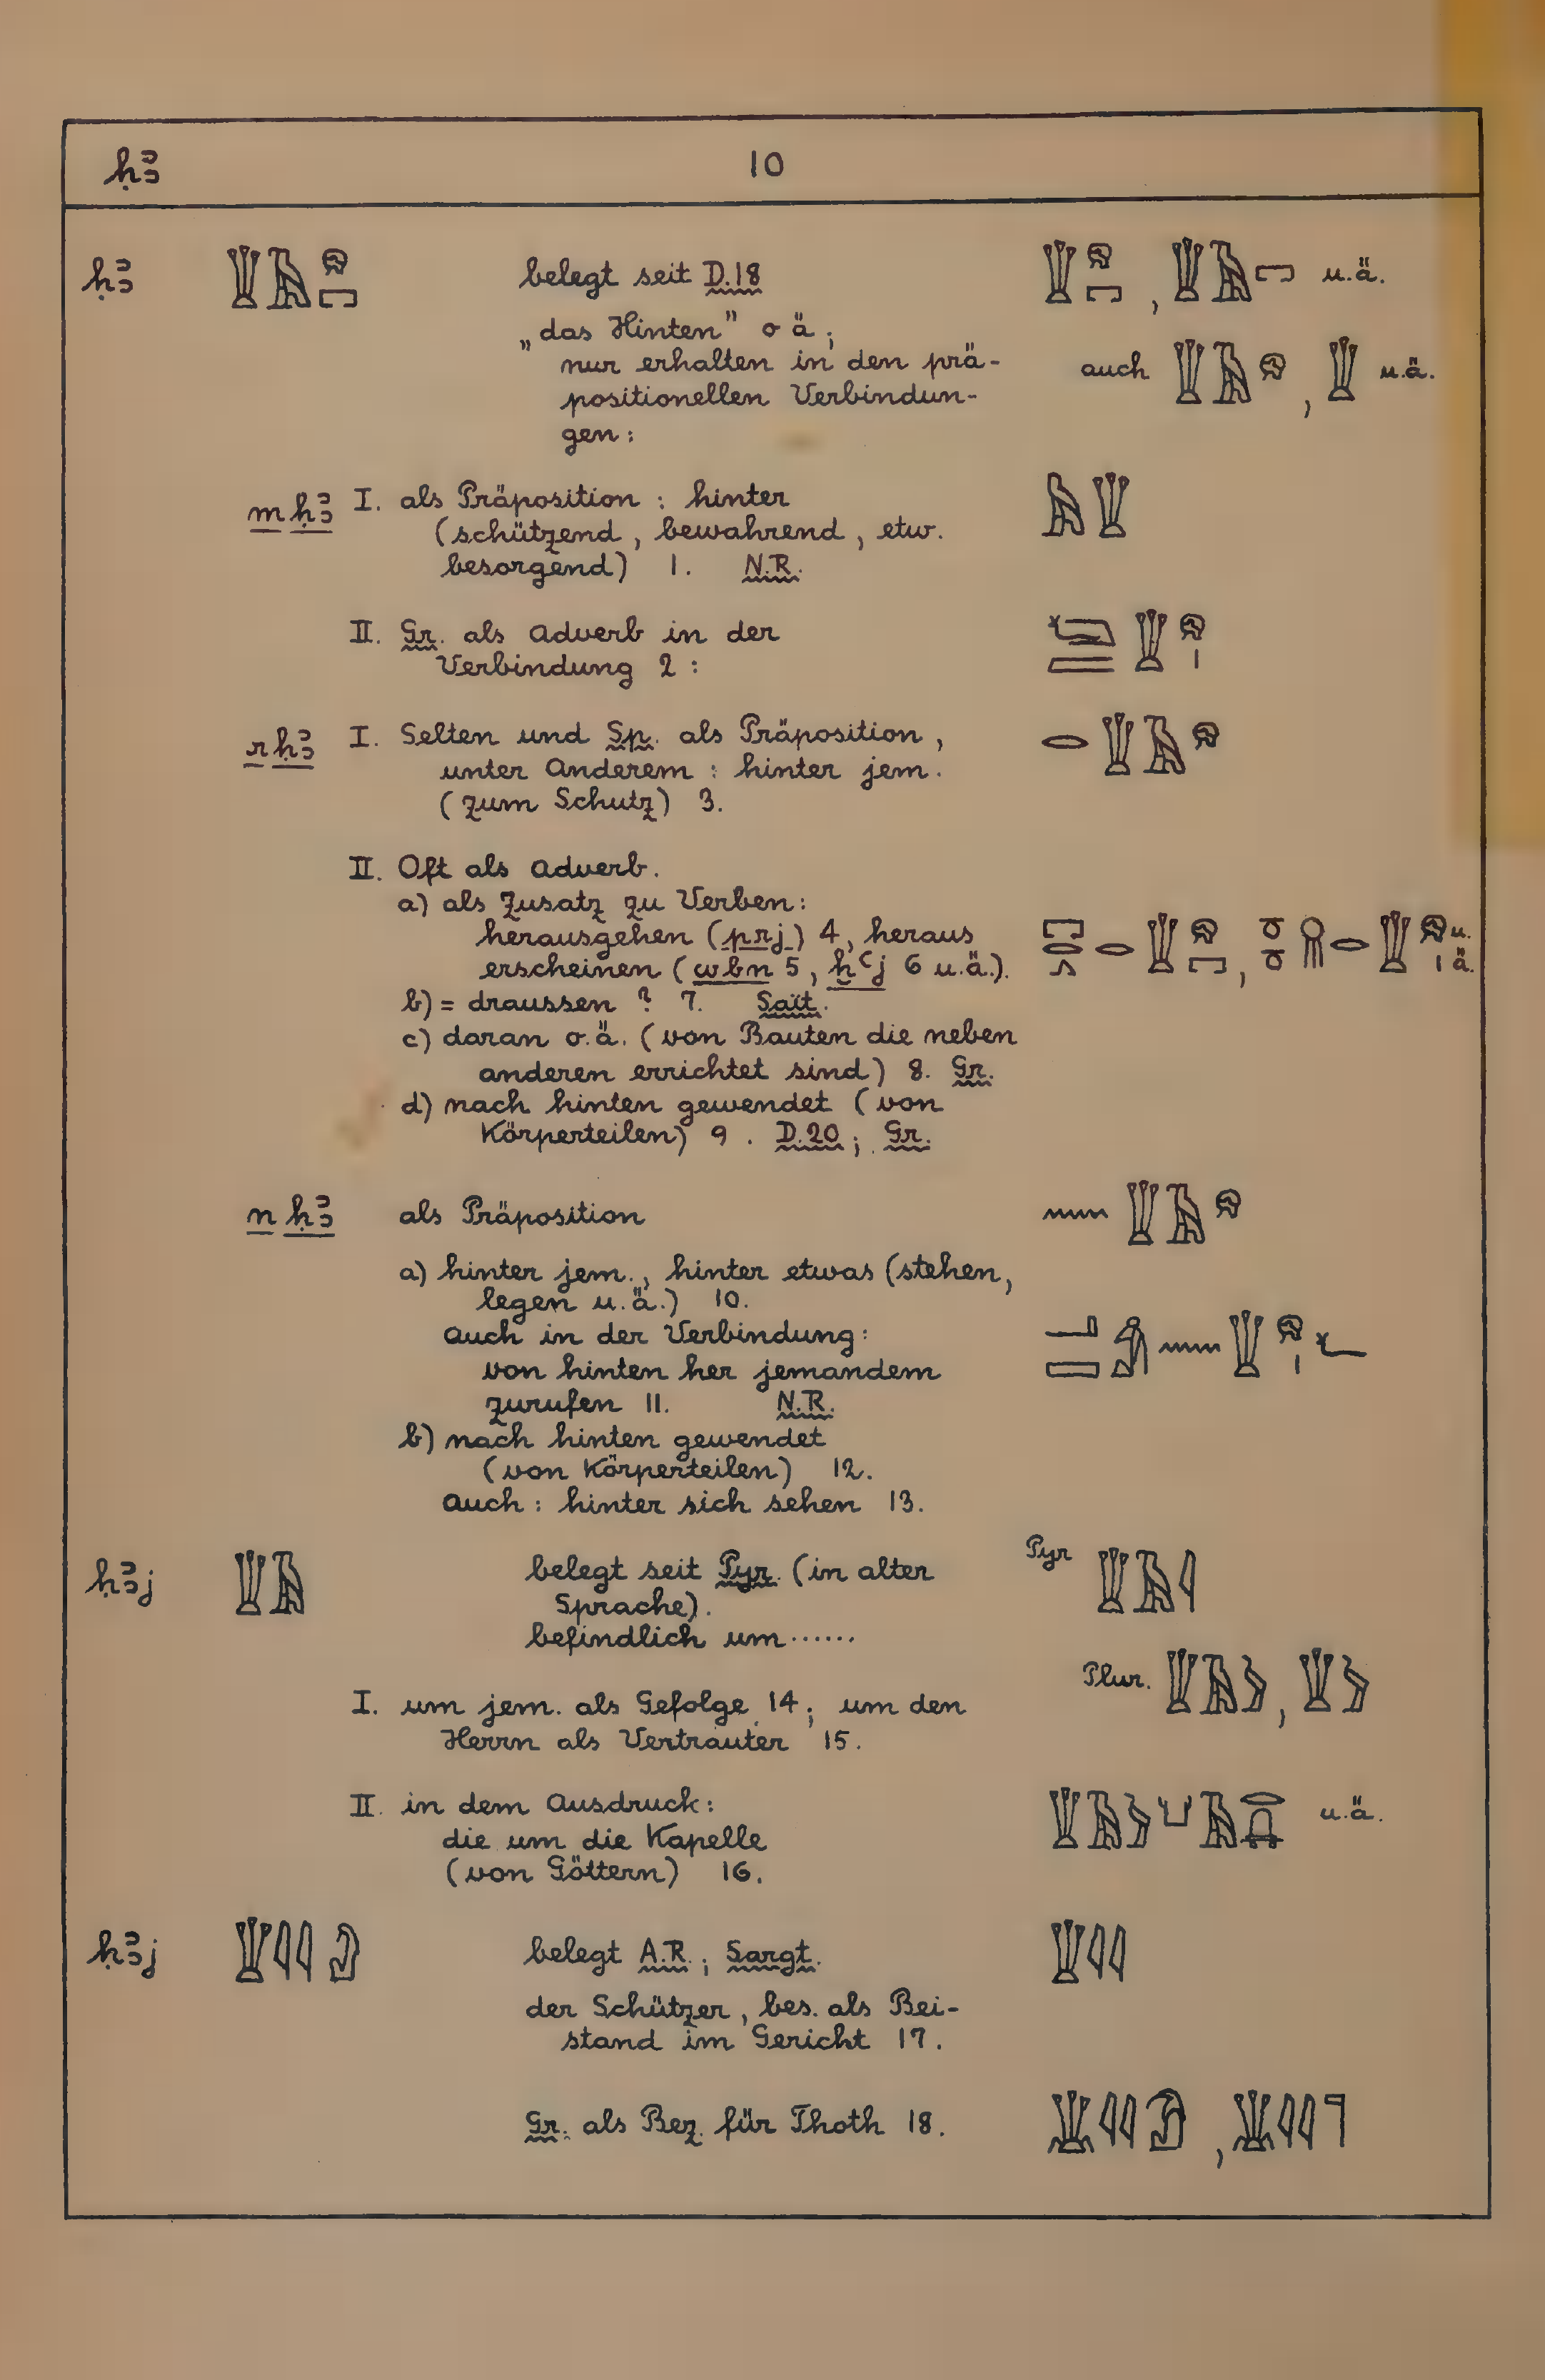 ḥꜣ 10
ḥꜣ belegt seit D.18 u.ä.
„das Hinten" o ä;
nur erhalten in den prä- auch u.ä.
positionellen Verbindun-
gen:
m ḥꜣ I. als Präposition : hinter
(schützend, bewahrend, etw.
besorgend) 1. N.R.
II. Gr. als Adverb in der
Verbindung 2 :
r ḥꜣ I. Selten und Sp. als Präposition,
unter Anderem : hinter jem.
(zum Schutz) 3.
II. Oft als Adverb.
a) als Zusatz zu Verben:
herausgehen (prj) 4, heraus u.
erscheinen (wbn 5, ḫꜥj 6 u.ä.). ä.
b) = draussen ? 7. Saït.
c) daran o.ä. (von Bauten die neben
anderen errichtet sind) 8. Gr.
d) nach hinten gewendet (von
Körperteilen) 9. D.20; Gr.
n ḥꜣ als Präposition
a) hinter jem., hinter etwas (stehen,
legen u.ä.) 10.
Auch in der Verbindung:
von hinten her jemandem
zurufen 11. N.R.
b) nach hinten gewendet
(von Körperteilen) 12.
Auch : hinter sich sehen 13.
ḥꜣj belegt seit Pyr. (in alter Pyr
Sprache).
befindlich um......
Plur.
I. um jem. als Gefolge 14; um den
Herrn als Vertrauter 15.
II. in dem Ausdruck: u.ä.
die um die Kapelle
(von Göttern) 16.
ḥꜣj belegt A.R.; Sargt.
der Schützer, bes. als Bei-
stand im Gericht 17.
Gr. als Bez. für Thoth 18.